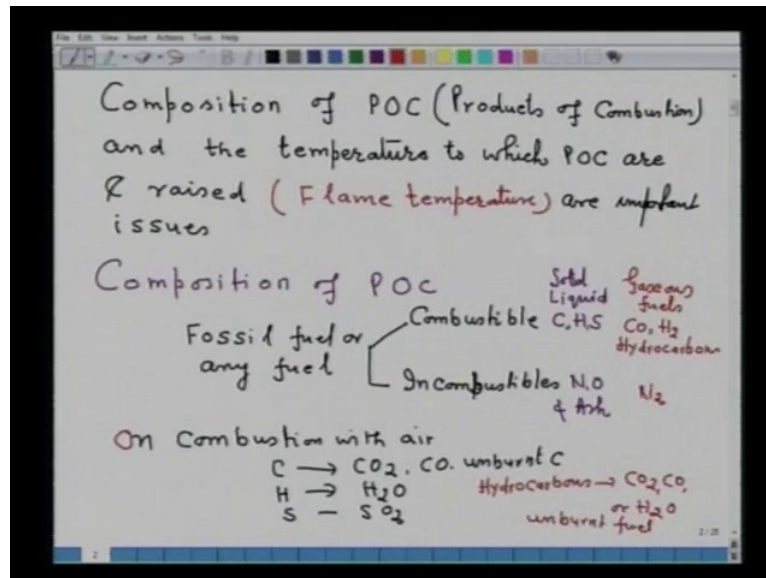 File Edit View Insert Actions Tools Help
Composition of POC (Products of Combustion)
and the temperature to which POC are
raised (Flame temperature) are important
issues
Composition of POC
Solid Gaseous
Liquid fuels
Fossil fuel or
any fuel
Combustible C,H,S CO, H2
Hydrocarbon
Incombustibles N,O N2
& Ash
On Combustion with air
C → CO2, CO. unburnt C
Hydrocarbons → CO2, CO,
H → H2O
or H2O
S — SO2
unburnt fuel
2/25
2